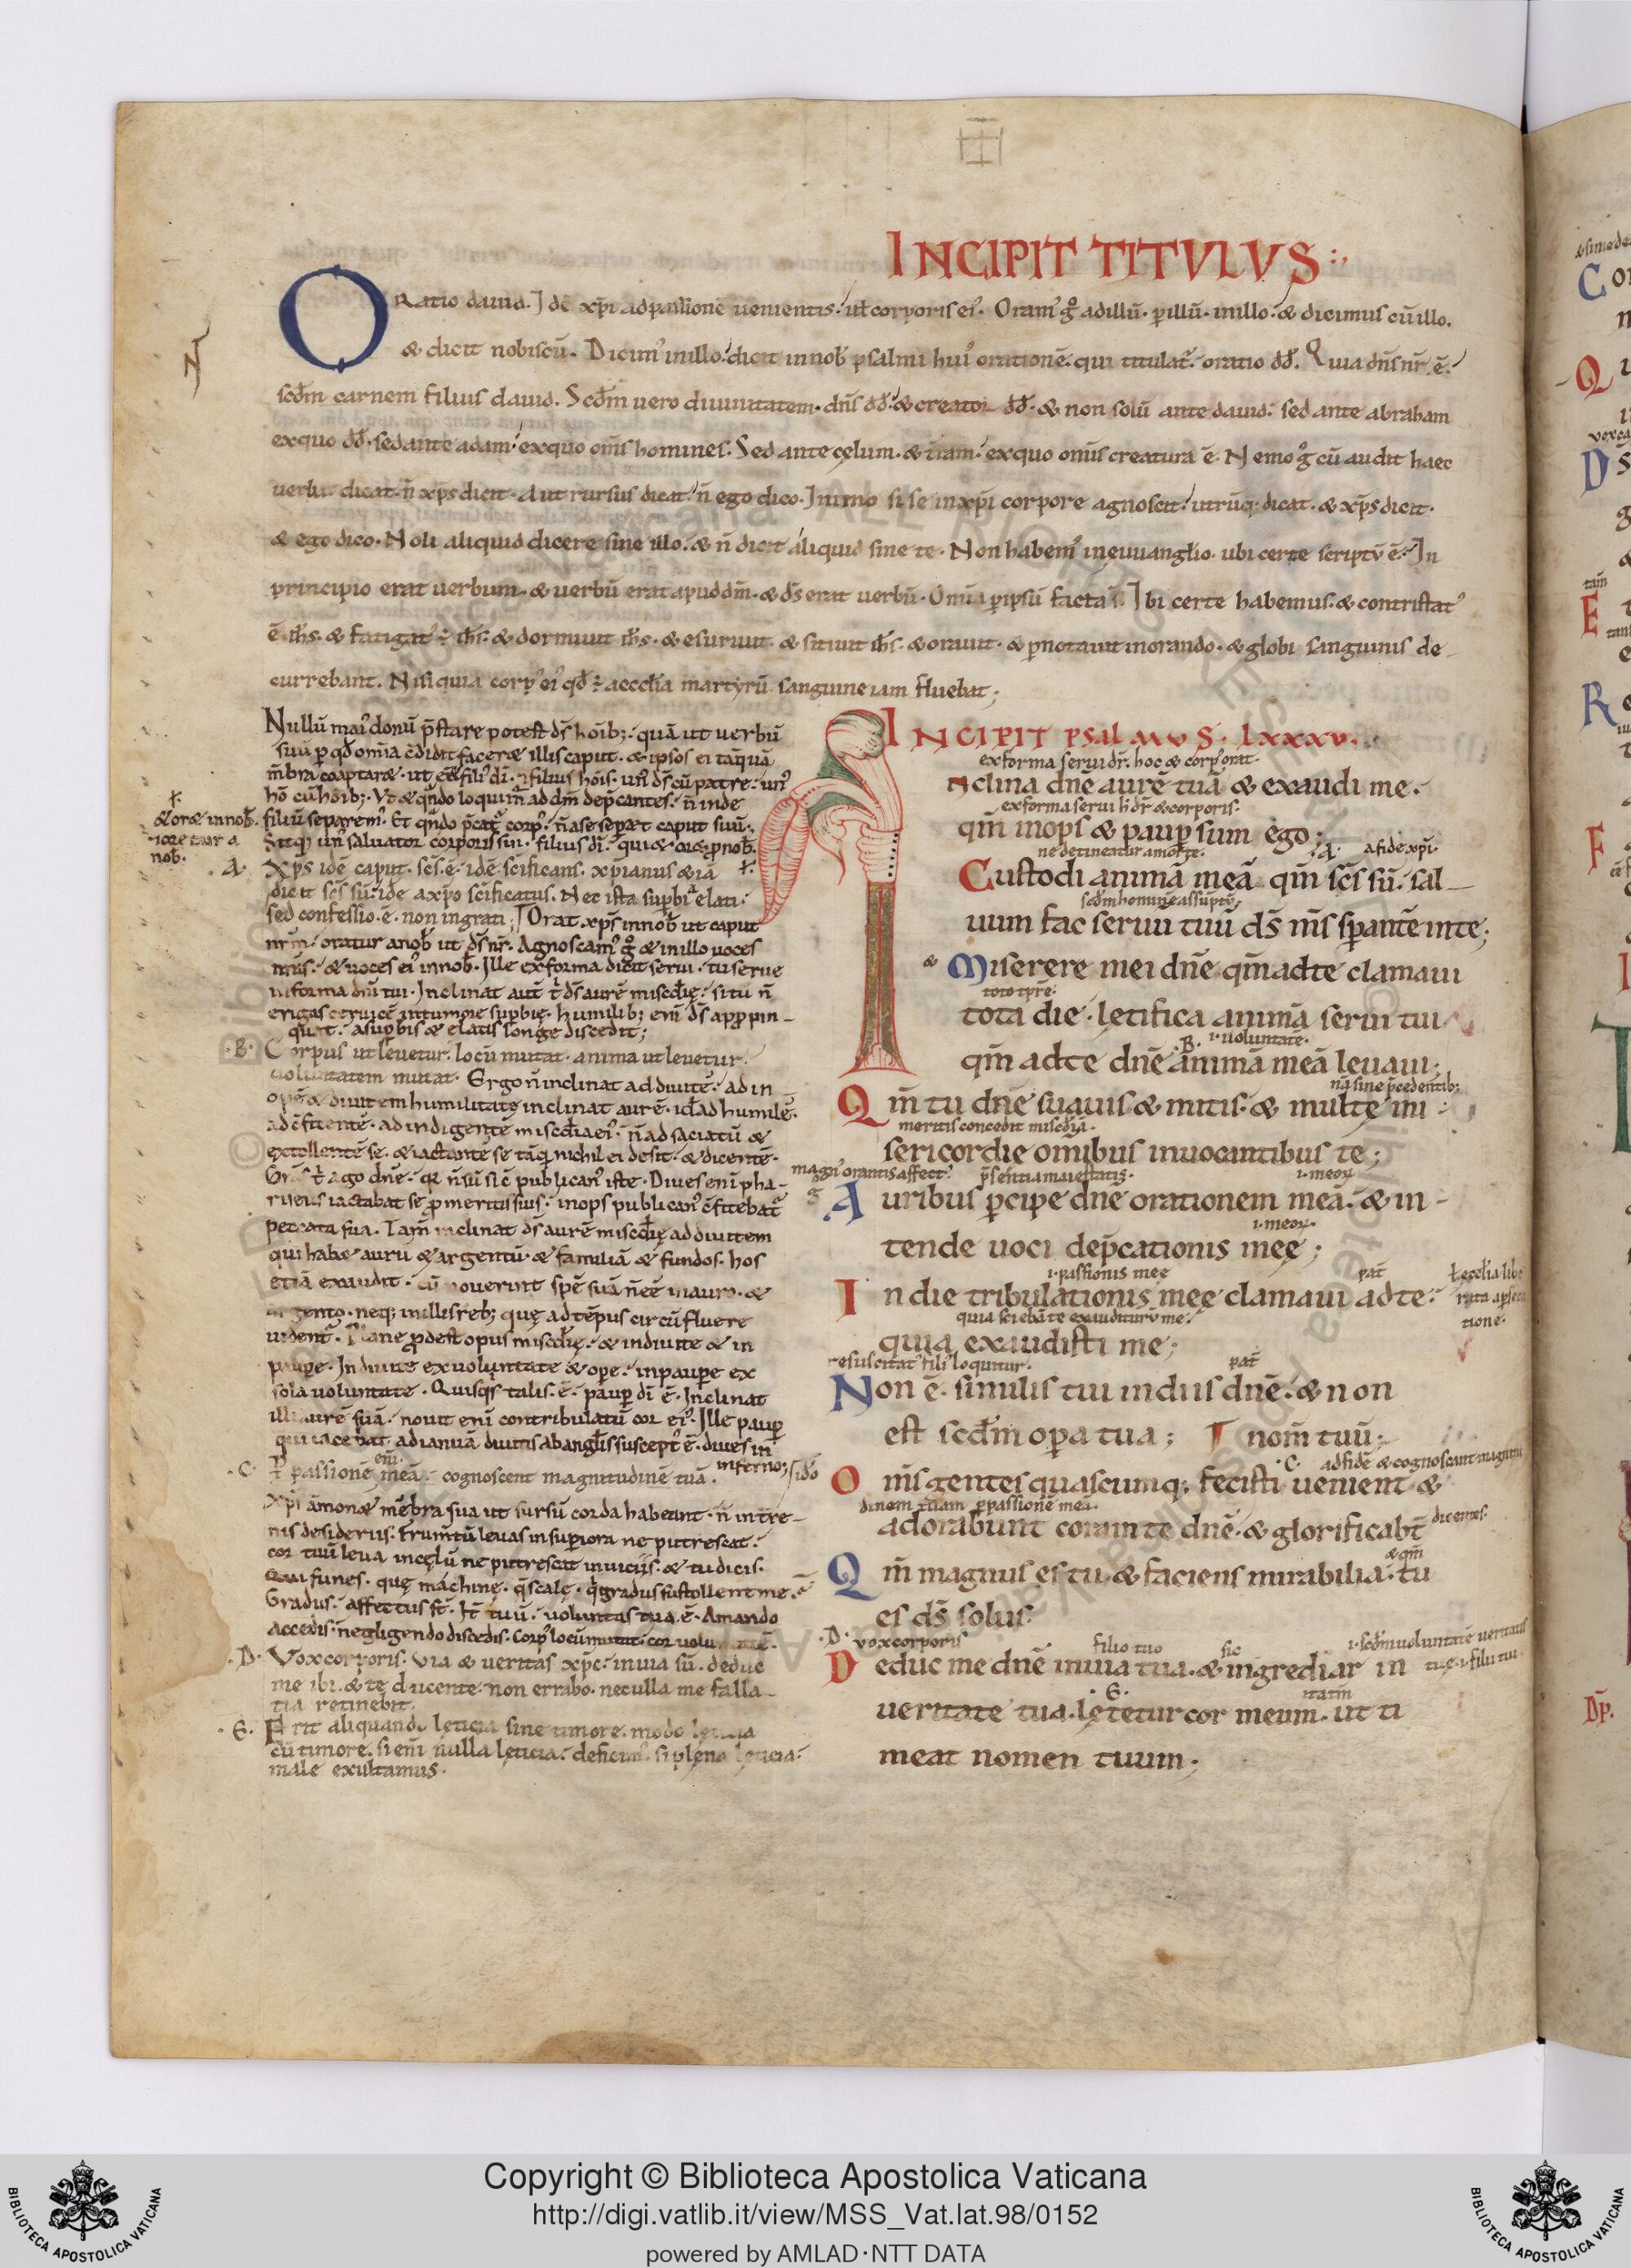 INCIPIT TITVLVS
ORatio dauid. Idē xp̄i ad passionē uenientis. uł corporis ei᾽. Oram᾽ g° ad illū. p illū. in illo. & dicimus cū illo.
& dicit nobiscū. Dicim᾽ in illo. dicit in nob̄ psalmi hui᾽ orationē. qui titulat᾽. oratio dd̄. Quia dn̄s nr̄ ē.
scd̄m carnem filius dauid. Scd̄m uero diuinitatem. dn̄s dd̄. & creator dd̄. & non solū ante dauid. sed ante abraham
ex quo dd̄. sed ante adam. ex quo om̄s homines. Sed ante cęlum. & t̄ram. ex quo om̄is creatura ē. Nemo g° cū audit haec
uerba dicat. n̄ xp̄s dicit. Aut rursus dicat. n̄ ego dico. Immo si se in xp̄i corpore agnoscit. utrūq; dicat. & xp̄s dicit.
& ego dico. Noli aliquid dicere sine illo. & n̄ dicit aliquid sine te. Non habem᾽ in euuanglio. ubi certe scriptū ē. In
principio erat uerbum. & uerbū erat apud dm̄. & ds̄ erat uerbū. Omīa p ipsū facta s̄. Ibi certe habemus. & contristat᾽
ē ih̄s. & fatigat᾽ ÷ ih̄s. & dormiuit ih̄s. & esuriuit. & sitiuit ih̄s. & orauit. & pnotauit in orando. & globi sanguinis de-
currebant. Nisi quia corp᾽ ei᾽ qd̄ ÷ aecclīa martyrū sanguine iam fluebat;
Nullū mai᾽ donū p̄stare potest ds̄ hoīb;. quā ut uerbū
suū p qd̄ omīa c̄didit faceræ illis caput. & ipsos ei tāquā
m̄bra coaptaræ. ut e&̄ fili᾽ dī. & filius hōis. un᾽ ds̄ cū patre. un᾽
hō cū hōib;. Vt & qn̄do loquim᾽ ad dm̄ dep̄cantes. n̄ inde
filiū separem᾽. Et qn̄do p̄cat᾽ corp᾽. n̄ a se separet caput suū.
Sitq; un᾽ saluator corporis sui. filius dī. qui & oræ p nob̄.
& oræ in nob̄.
& oretur a
nob̄.
.A. Xp̄s idē caput. scs̄. ē. idē sc̄ificans. xp̄ianus & iā
dicit scs̄ sū. idē a xp̄o sc̄ificatus. Nec ista supbia elati.
sed confessio. ē. non ingrati; Orat xp̄s in nob̄ ut caput
nr̄m. oratur a nob̄ ut ds̄ nr̄. Agnoscam᾽ g° & in illo uoces
nr̄as. & uoces ei᾽ in nob̄. Ille ex forma dicit serui. tu serue
in forma dnī tui. Inclinat aut̄ t᾽ ds̄ aurē misc̄dię. si tu n̄
erigas ceruicē in tumore supbię. humilib; enī ds̄ appropin-
quat. a supbis & elatis longe discedit;
.B. Corpus ut leuetur. locū mutat. anima ut leuetur.
uoluntatem mutat. Ergo n̄ inclinat ad diuitē. ad in
opē & diuitem humilitatę inclinat aurē. id̄ ad humilē.
ad c̄fitentē. ad indigentē misc̄dia ei᾽. n̄ ad saciatū &
extollentē se. & iactantē se tāq̄ nichil ei desit. & dicentē.
Grās t᾽ ago dnē. qr n̄ sū sic̄ publican᾽ iste. Diues enī pha-
riseus iactabat se p meritis suis. inops publican᾽ c̄fitebat᾽
peccata sua. Tam̄ inclinat ds̄ aurē misc̄dię ad diuitem
qui habæ aurū & argentū. & familiā & fundos. hos
etiā exaudit. cū nouerint spē suā n̄ eē in auro. &
argento. neq; in illis reb; quę ad tēpus circū fluere
uident᾽. Plane p̄dest opus misc̄dię. & in diuite & in
paupe. In diuite ex uoluntate & ope. in paupe ex
sola uoluntate. Quisq̄s talis. ē. paup dī ē. Inclinat
illi aurē suā. nouit enī contribulatū cor ei᾽. Ille paup
qui iacebat ad ianuā diuitis ab anglis suscept᾽ ē. diues in
inferno;
.C. P passionē enī meā. cognoscent magnitudinē tuā.
Xp̄i āmonæ mēbra sua ut sursū corda habeant. n̄ in tr̄e-
nis desideriis. Frum̄tū leuas in supiora ne putrescat.
cor tuū leua in cęlū ne putrescat in uiciis. & tu dicis.
Qui funes. quę machinę. q̄ scalę. q̄ gradus sustollent me.
Gradus. affectus st̄. It̄ tuū. uoluntas tua ē. Amando
accedis. negligendo discedis. Corp᾽ locū mutat. cor uoluntatē.
.D. Vox corporis. Via & ueritas xp̄c. in uia sū. deduc
me ibi. & te ducente. non errabo. nec ulla me falla-
tia retinebit.
.E. Erit aliquando lęticia sine timore. modo lęticia
cū timore. si enī nulla lęticia. deficim᾽. si plena lęticia.
male exultamus.
INCIPIT psalMVS. lxxxv.
ex forma serui dr̄. hoc & corp᾽ orat.
INclina dnē aurē tuā & exaudi me.
ex forma serui h̄ dr̄ & corporis.
qm̄ inops & paup sum ego;
ne detineatur a morte. .A. a fide xp̄i.
Custodi animā meā qm̄ scs̄ sū. sal-
scd̄m hominē assuptū
uum fac seruū tuū ds̄ ms̄ sperantē in te;
Miserere mei dnē qm̄ ad te clamaui
toto tpre
tota die. lętifica animā serui tui
.B. i. uoluntatē.
qm̄ ad te dnē animā meā leuaui;
nā sine p̄cedentib;
Qm̄ tu dnē suauis & mitis. & multę mi
meritis concedit misc̄diā.
sericordie omībus inuocantibus te;
magn᾽ orantis affect᾽. p̄sentia maiestatis. i. meoꝝ
Auribus pcipe dnē orationem meā. & in-
i. meoꝝ.
tende uoci dep̄cationis meę;
i. passionis meę pat̄
In die tribulationis meę clamaui ad te.
ł ecclīa libe
rata a psecu
tione.
quia sciebā te exauditurū me.
quia exaudisti me;
resuscitat᾽ fili᾽ loquitur. pat̄
Non ē. similis tui in diis dnē. & non
est scd̄m opa tua; nom̄ tuū;
.C. ad fidē & cognoscant magnitu
Om̄s gentes quascumq; fecisti uenient &
dinem tuam p passionē meā.
adorabunt coram te dnē. & glorificab̄t
dicentes.
& qm̄
Qm̄ magnus es tu. & faciens mirabilia. tu
es ds̄ solus.
.D. vox corporis filio tuo sic i. scd̄m uoluntatē ueritatis
Deduc me dnē in uia tua. & ingrediar in
tuę i. filii tui
.E.
ueritate tua. lętetur cor meum. ut ti
meat nomen tuum.
Copyright © Biblioteca Apostolica Vaticana
http://digi.vatlib.it/view/MSS_Vat.lat.98/0152
powered by AMLAD·NTT DATA
BIBLIOTECA APOSTOLICA VATICANA
BIBLIOTECA APOSTOLICA VATICANA